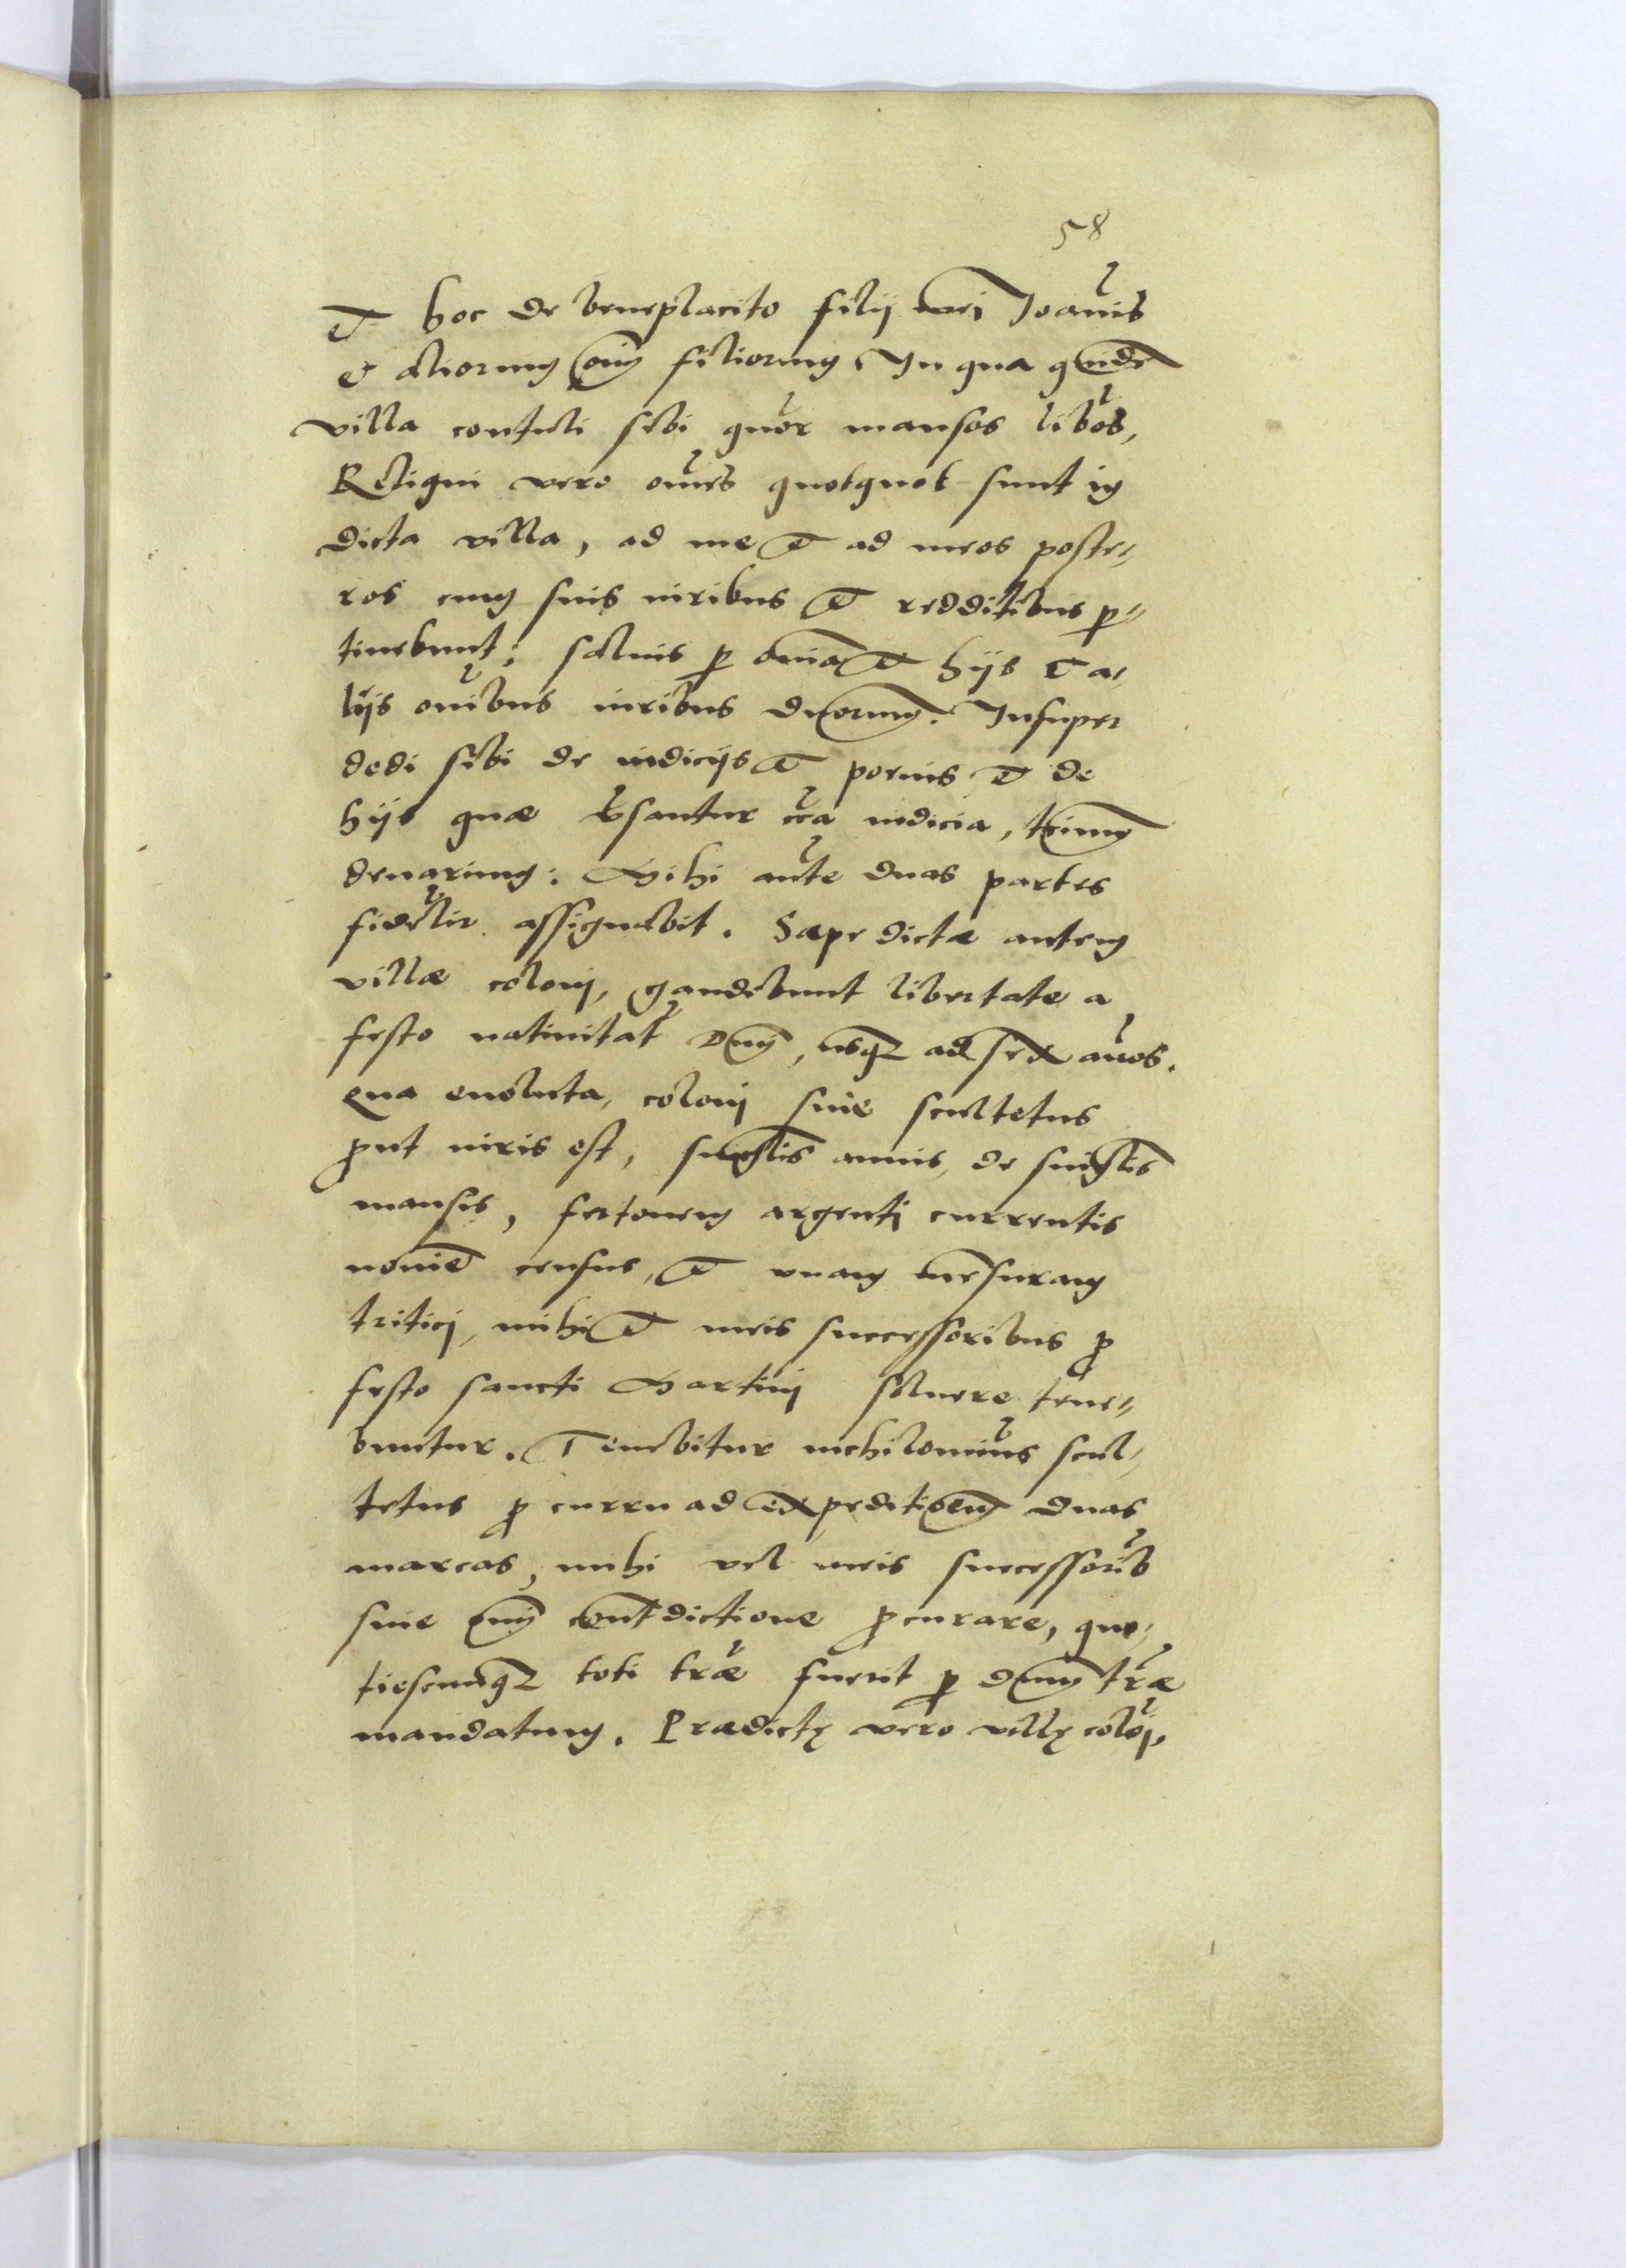 58
et hoc de beneplacito filij mei Joãnis
et aliorum oĩm filiorum. In qua q̃dẽ
villa contuli sibi quõr mansos lib̃os,
Reliqui vero om̃es quotquot sunt in
dicta villa, ad me et ad meos poste-
ros cum suis iuribus et redditibus ꝑ-
tinebunt, saluis ꝑ om̃ia et hijs et a-
lijs om̃ibus iuribus duorum. Insuper
dedi sibi de iudicijs et poenis et de
hijs quae ṽsantur c̃ca iudicia, t̃cium
denarium: Mihi aũte duas partes
fidelit̃ assignabit. Saepe dictae autem
villae colonj, gaudebunt libertate a
festo natiuitat̃ Dñj, usqꝫ ad sex ãnos.
Qua euoluta, colonj siue scultetus
ꝓut iuris est, singl̃is annis, de singl̃is
mansis, fertonem argentj currentis
nomĩe census, et unam mensuram
triticj, mihi et meis successoribus ꝓ
festo sancti Martinj soluere tene-
buntur. Tenebitur nichilomiñs scul-
tetus ꝓ curru ad expeditionem duas
marcas, mihi vel meis successorib̃
sine omnj cont̃dictione ꝓcurare, quo-
tiescumqꝫ toti t̃rae fuerit ꝑ dñm t̃rae
mandatum. Praedictę vero villę colõj,